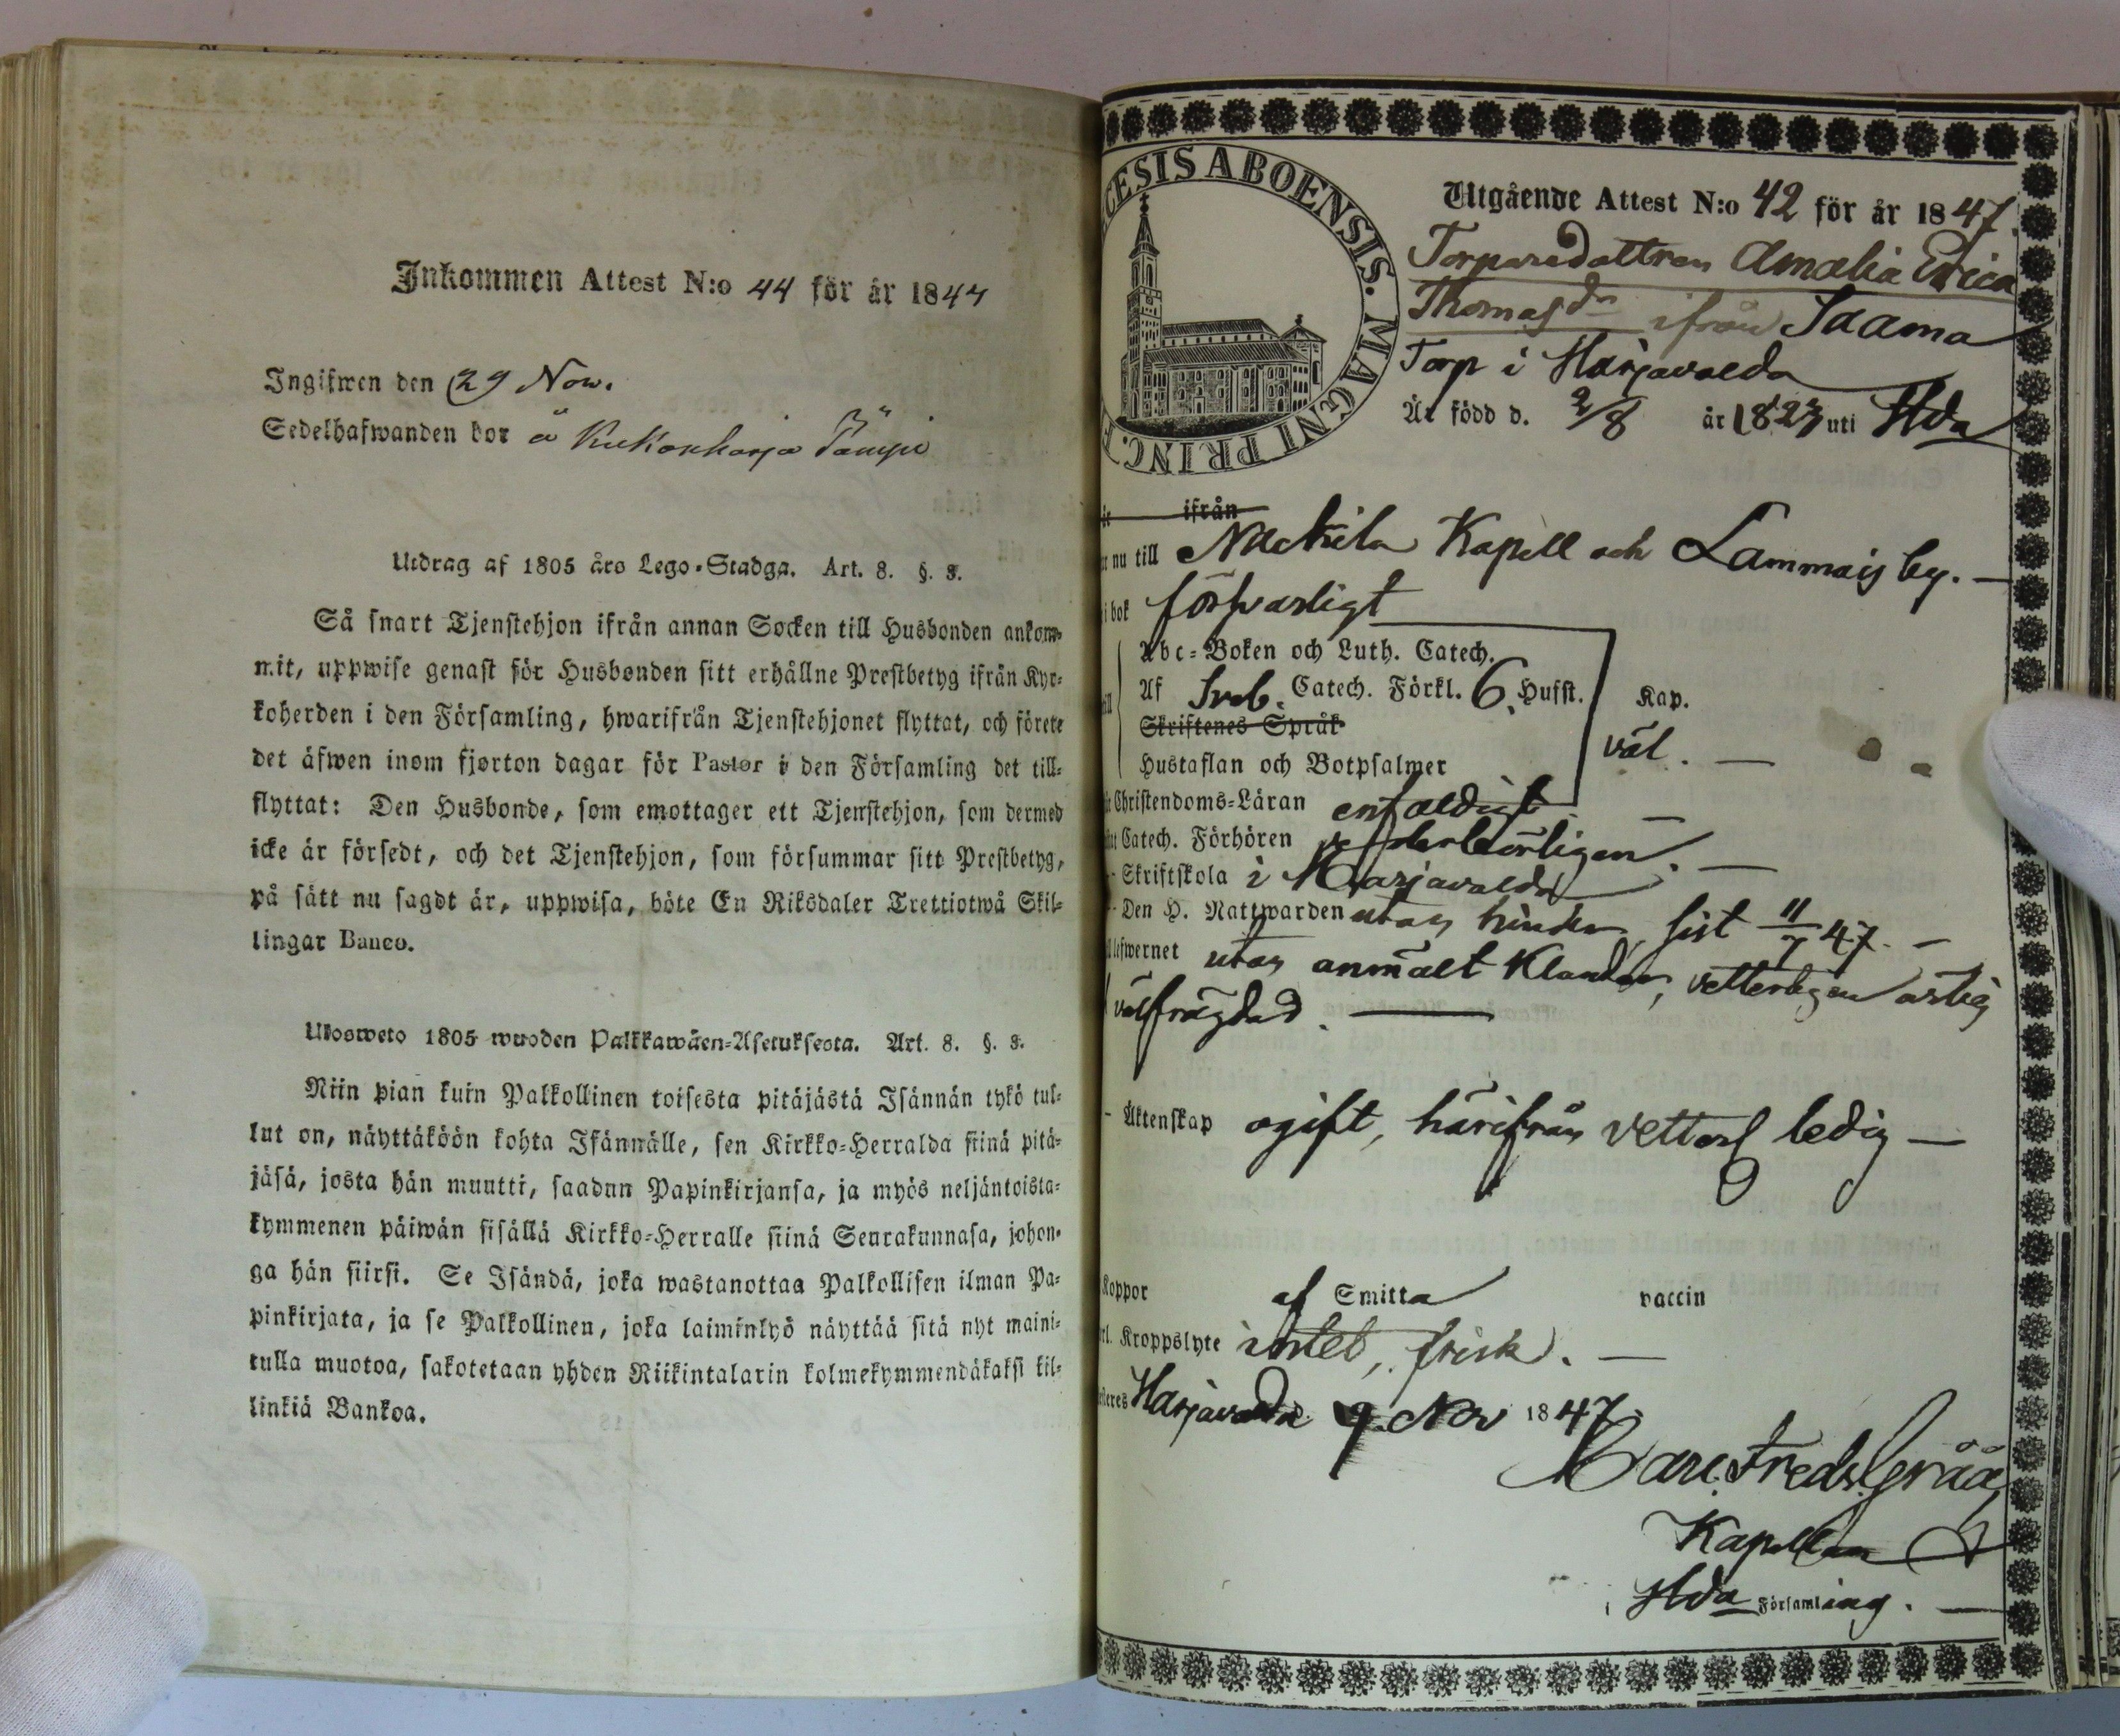 Inkommen Attest N:o 44 för år 1847
Ingifwen den 29 Now.
Sedelhafwanden bor å Kukonharja
Utdrag af 1805 års Lego-Stadga. Art. 8. §. 3.
Så snart Tjenstehjon ifrån annan Socken till Husbonden ankom-
mit, uppwise genast för Husbonden sitt erhållne Prestbetyg ifrån Kyr-
koherden i den Församling, hwarifrån Tjenstehjonet flyttat, och förete
det äfwen inom fjorton dagar för Pastor i den Församling det till-
flyttat: Den Husbonde, som emottager ett Tjenstehjon, som dermed
icke är försedt, och det Tjenstehjon, som försummar sitt Prestbetyg,
på sätt nu sagdt är, uppwisa, böte En Riksdaler Trettiotwå Skil-
lingar Banco.
Ulosweto 1805 wuoden Palkkawäen-Asetuksesta. Art. 8. §. 3.
Niin pian kuin Palkollinen toisesta pitäjästä Isännän tykö tul-
lut on, näyttäköön kohta Isännälle, sen Kirkko-Herralda siinä pitä-
jäsä, josta hän muutti, saadun Papinkirjansa, ja myös neljäntoista-
kymmenen päiwän sisällä Kirkko-Herralle siinä Seurakunnasa, johon-
ga hän siirsi. Se Isändä, joka wastanottaa Palkollisen ilman Pa-
pinkirjata, ja se Palkollinen, joka laiminlyö näyttää sitä nyt maini-
tulla muotoa, sakotetaan yhden Riikintalarin kolmekymmendäkaksi kil-
linkiä Bankoa.
CESIS ABOENSIS. MAGNI PRINC. F
Utgående Attest N:o 42 för år 1847.
Torparedottren Amalia Erica
Thomasdr ifrån Saama
Torp i Harjavalda
Är född d. 2/8 år 1823 uti Hda
ifrån
nu till Nackila Kapell och Lammais by.
i bok försvarligt
Abc-Boken och Luth. Catech.
Af Sveb. Catech. Förkl. 6. Hufst. Kap.
Skriftenes Språk
väl.
Hustaflan och Botpsalmer
Christendoms-Läran enfaldigt
Catech. Förhören vederbörligen.
Skriftskola i Harjavalda
Den H. Nattwarden utan hinder, sist 11/7 47.
lefwernet utan anmält Klander, vetterligen ärlig
välfrägdad.
Äktenskap ogift, härifrån vetterl ledig
Koppor af Smitta vaccin
Kroppslyte intet, frisk.
Harjavalda 9 Nov 1847.
Carl Fredr. Gråå,
Kapellan
i Hda Församling.